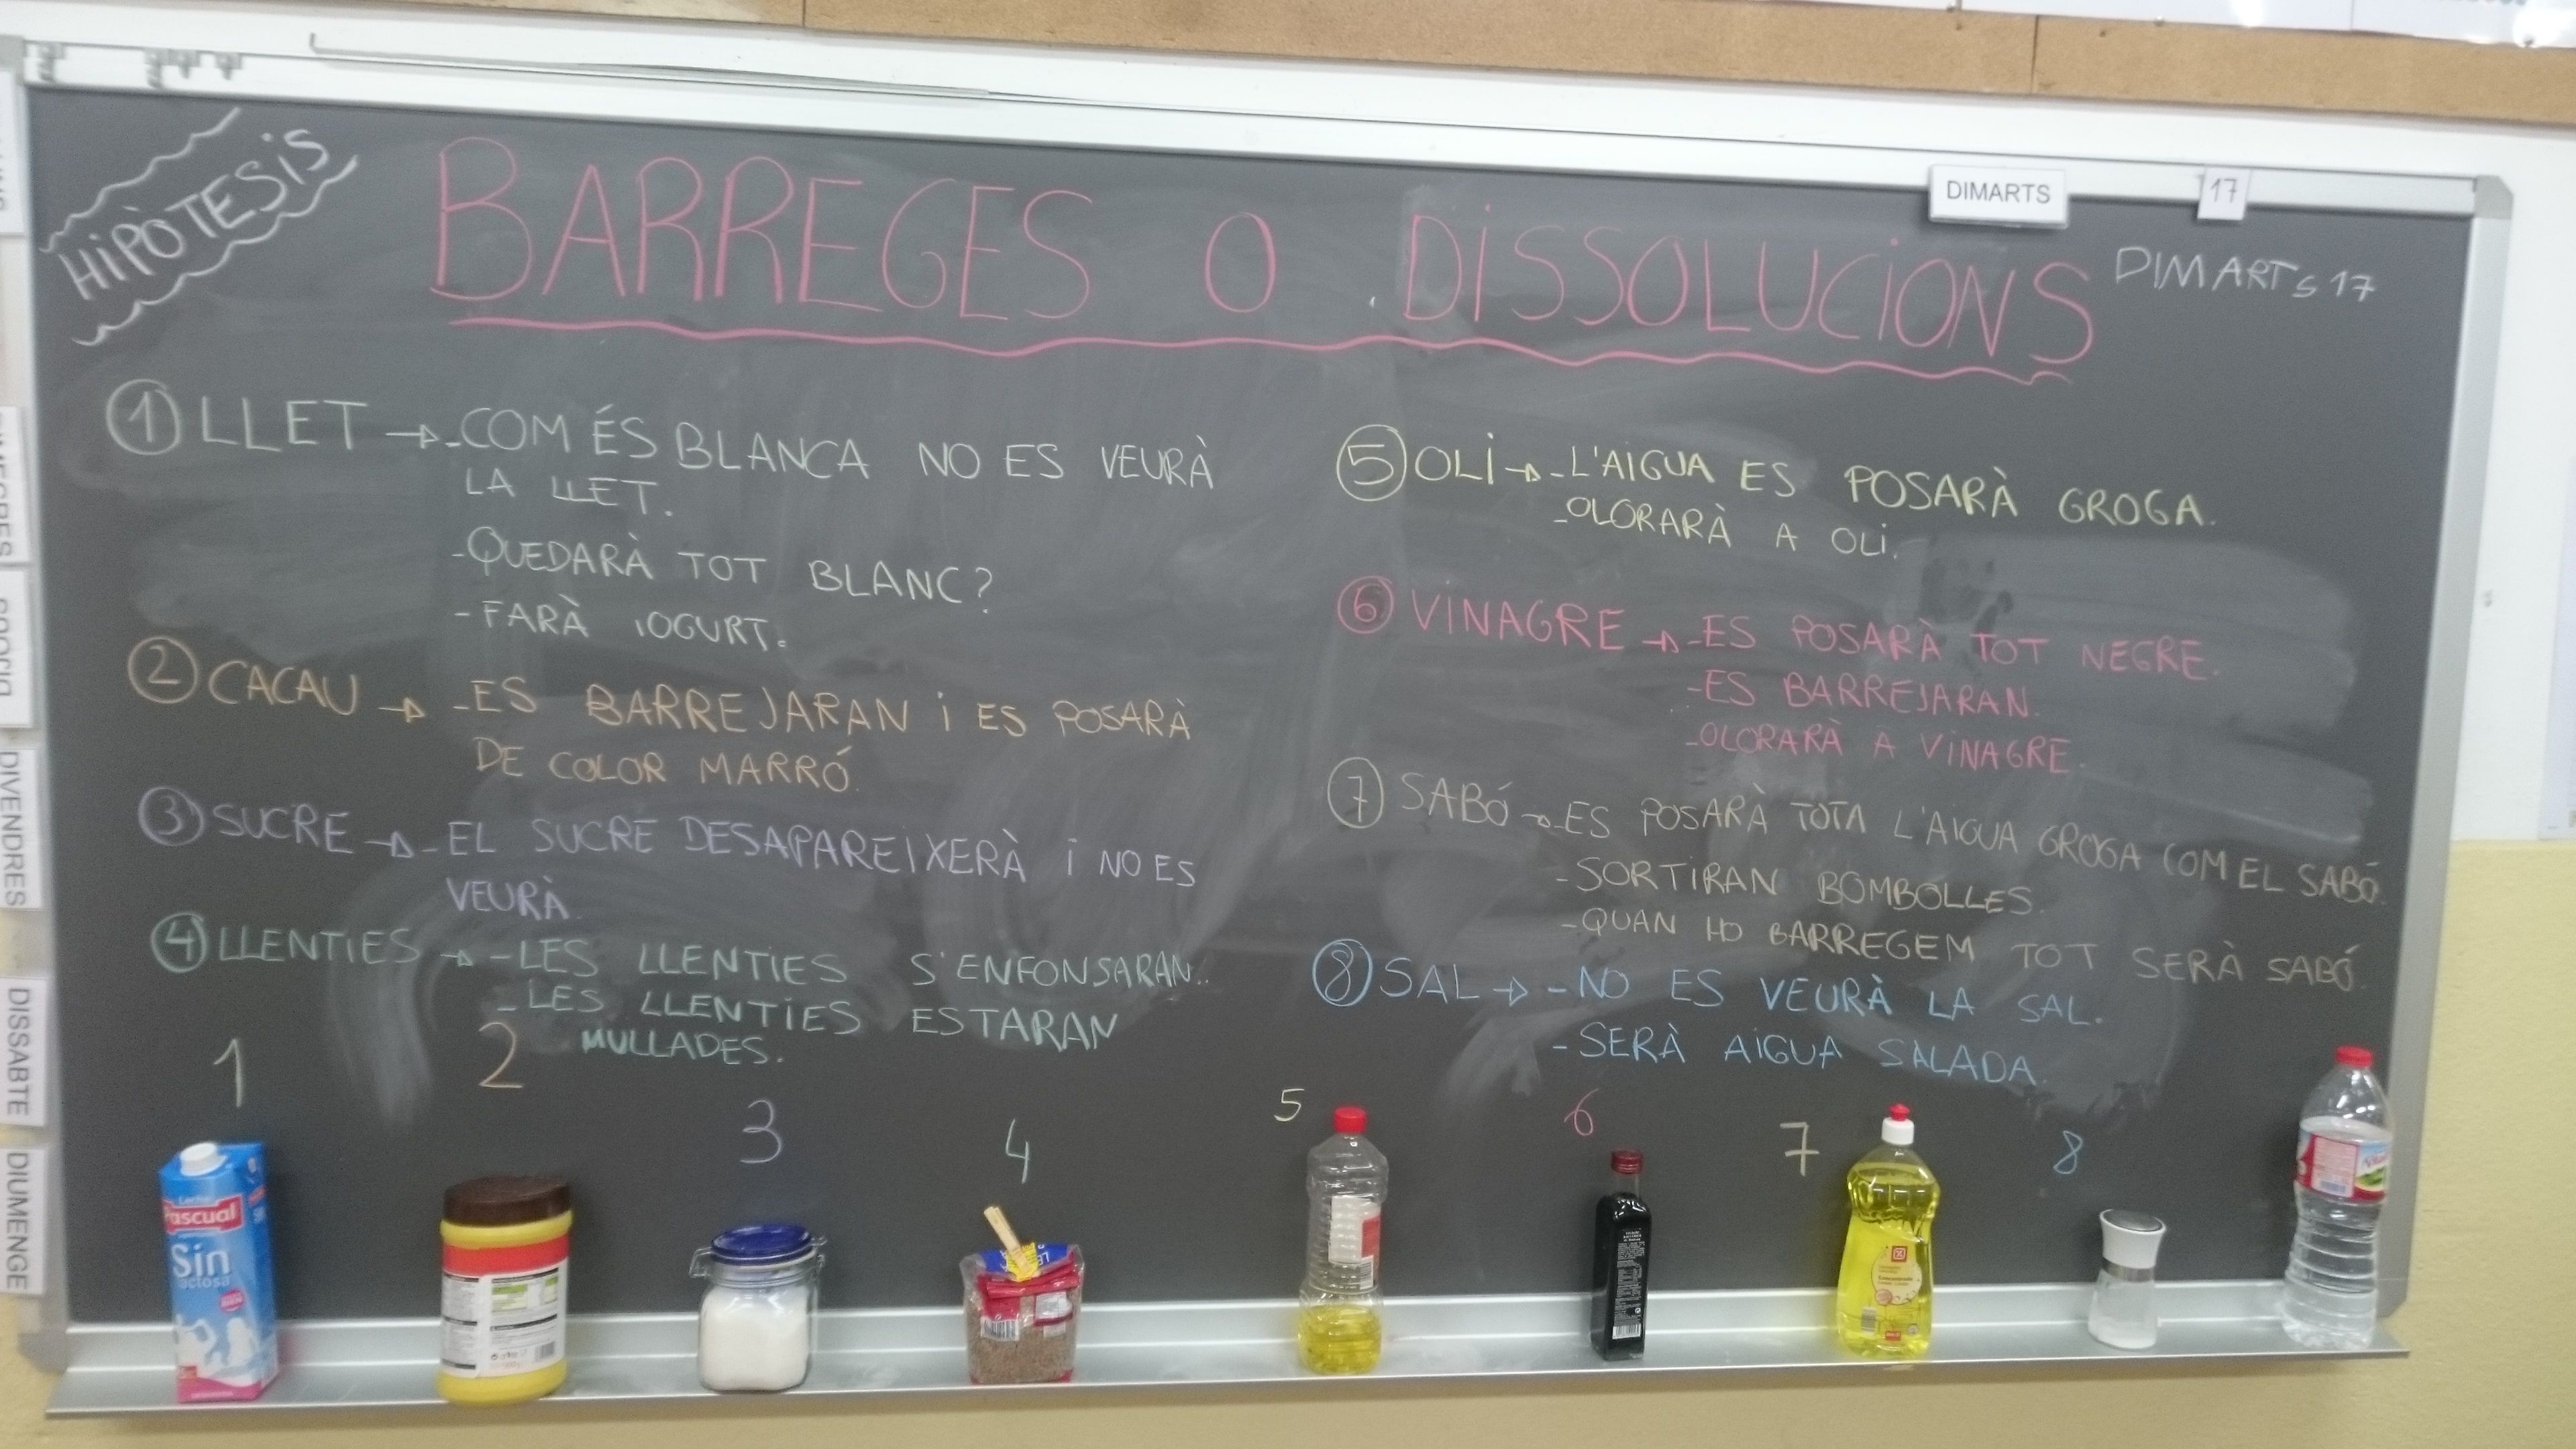 DIMARTS
17
HIPÒTESIS
BARREGES O DISSOLUCIONS
DIMARTS 17
1 LLET → - COM ÉS BLANCA NO ES VEURÀ
LA LLET.
- QUEDARÀ TOT BLANC?
- FARÀ IOGURT.
2 CACAU → - ES BARREJARAN I ES POSARÀ
DE COLOR MARRÓ.
3 SUCRE → - EL SUCRE DESAPAREIXERÀ I NO ES
VEURÀ.
4 LLENTIES → - LES LLENTIES S'ENFONSARAN..
- LES LLENTIES ESTARAN
MULLADES.
5 OLI → - L'AIGUA ES POSARÀ GROGA.
- OLORARÀ A OLI.
6 VINAGRE → - ES POSARÀ TOT NEGRE.
- ES BARREJARAN.
- OLORARÀ A VINAGRE.
7 SABÓ → - ES POSARÀ TOTA L'AIGUA GROGA COM EL SABÓ.
- SORTIRAN BOMBOLLES.
- QUAN HO BARREGEM TOT SERÀ SABÓ.
8 SAL → - NO ES VEURÀ LA SAL.
- SERÀ AIGUA SALADA.
1
2
3
4
5
6
7
8
Leche
Pascual
Sin
lactosa
DIVENDRES
DISSABTE
DIUMENGE